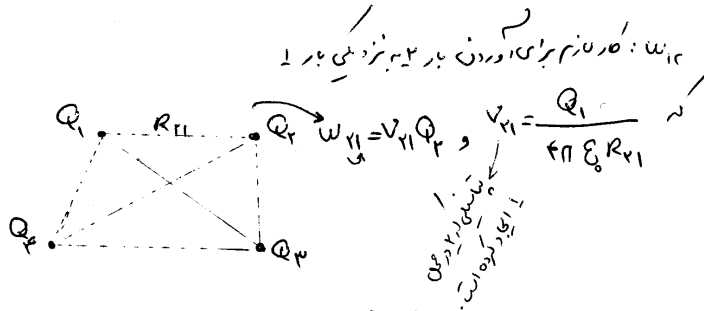 W₁₂ : کار لازم برای آوردن بار ۲ به نزدیکی بار ۱
Q₁ R₂₁ Q₂ W₂₁ = V₂₁ Q₂ , V₂₁ = Q₁ / ۴π ε₀ R₂₁
پتانسیلی که ۱ در محل ۲ ایجاد کرده است.
Q₄ Q₃